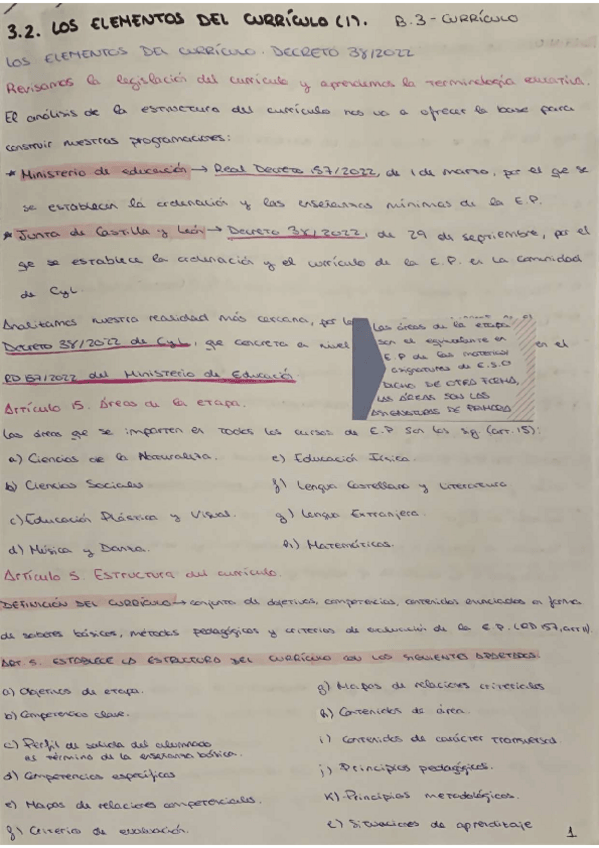 3.2. LOS ELEMENTOS DEL CURRÍCULO (1). B.3 - CURRÍCULO
LOS ELEMENTOS DEL CURRÍCULO. DECRETO 38/2022
Revisamos la legislación del currículo y aprendemos la terminología educativa.
El análisis de la estructura del currículo nos va a ofrecer la base para
construir nuestras programaciones:
* Ministerio de educación → Real Decreto 157/2022, de 1 de marzo, por el qe se
se establecen la ordenación y las enseñanzas mínimas de la E.P.
* Junta de Castilla y León → Decreto 38/2022, de 29 de septiembre, por el
qe se establece la ordenación y el currículo de la E.P. en la comunidad
de CyL.
Analizamos nuestra realidad más cercana, por
Decreto 38/2022 de CyL, qe concreta a nivel en el
RD 157/2022 del Ministerio de Educación
Las áreas de la etapa
son el equivalente en
E.P de las materias/
asignaturas de E.S.O
DICHO DE OTRA FORMA,
LAS ÁREAS SON LAS
ASIGNATURAS DE PRIMARIA
Artículo 15. Áreas de la etapa.
Las áreas qe se imparten en todos los cursos de E.P son las sg (art. 15):
a) Ciencias de la Naturaleza.
b) Ciencias Sociales
c) Educación Plástica y Visual.
d) Música y Danza.
e) Educación Física.
f) Lengua Castellana y Literatura
g) Lengua Extranjera.
h) Matemáticas.
Artículo 5. Estructura del currículo.
DEFINICIÓN DEL CURRÍCULO → conjunto de objetivos, competencias, contenidos enunciados en forma
de saberes básicos, métodos pedagógicos y criterios de evaluación de la E.P. (RD 157, art 11).
ART 5. ESTABLECE LA ESTRUCTURA DEL CURRÍCULO CON LOS SIGUIENTES APARTADOS:
a) Objetivos de etapa.
b) Competencias clave.
c) Perfil de salida del alumnado
al término de la enseñanza básica.
d) Competencias específicas
e) Mapas de relaciones competenciales.
f) Criterios de evaluación.
g) Mapas de relaciones criteriales
h) Contenidos de área.
i) Contenidos de carácter transversal.
j) Principios pedagógicos.
k) Principios metodológicos.
l) Situaciones de aprendizaje
1